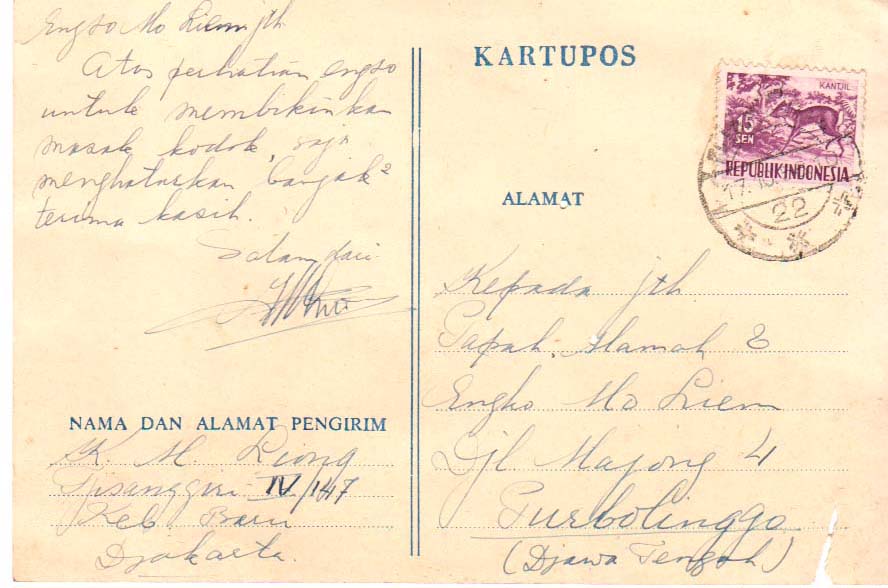 Engso Mo Liem jth.
Atas perhatian engso
untuk membikinkan
masak kodok, saja
menghaturkan banjak²
terima kasih.
Salam dari
KARTUPOS
KANTJIL
15
SEN
REPUBLIK INDONESIA
22
ALAMAT
Kepada jth
Papah, Mamah &
Engko Mo Liem
Djl Majong 4
Purbolinggo
(Djawa Tengah)
NAMA DAN ALAMAT PENGIRIM
K. M. Liong
IV/147
Keb. Baru
Djakarta.